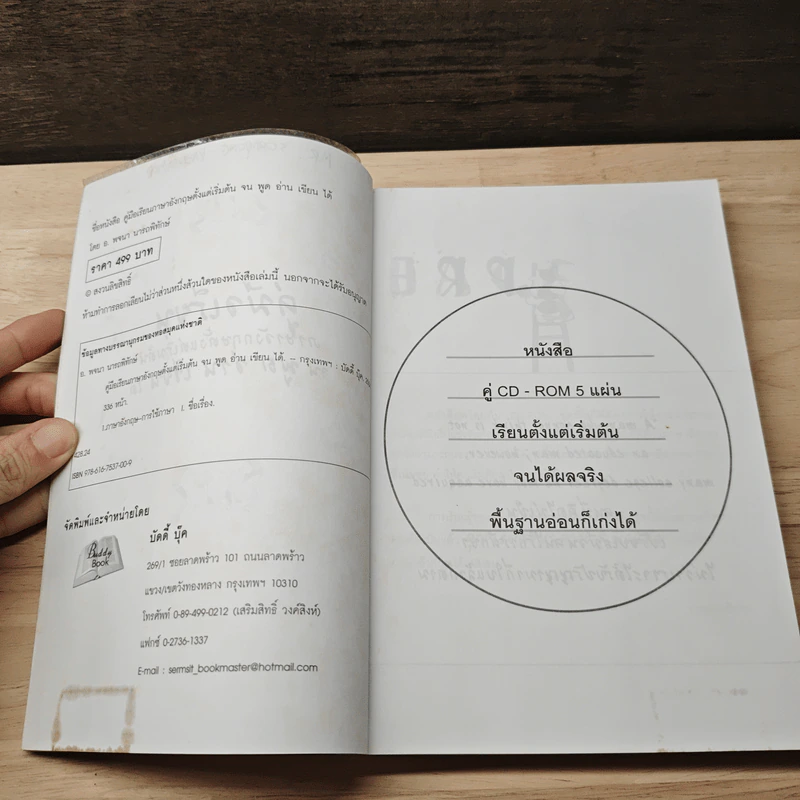 ชื่อหนังสือ คู่มือเรียนภาษาอังกฤษตั้งแต่เริ่มต้น จน พูด อ่าน เขียน ได้
โดย อ. พจนา นารถพิทักษ์
ราคา 499 บาท
© สงวนลิขสิทธิ์
ห้ามทำการลอกเลียนไม่ว่าส่วนหนึ่งส่วนใดของหนังสือเล่มนี้ นอกจากจะได้รับอนุญาต
ข้อมูลทางบรรณานุกรมของหอสมุดแห่งชาติ
อ. พจนา นารถพิทักษ์
คู่มือเรียนภาษาอังกฤษตั้งแต่เริ่มต้น จน พูด อ่าน เขียน ได้. -- กรุงเทพฯ : บัดดี้ บุ๊ค,
336 หน้า.
1.ภาษาอังกฤษ--การใช้ภาษา I. ชื่อเรื่อง.
428.24
ISBN 978-616-7537-00-9
จัดพิมพ์และจำหน่ายโดย
Buddy Book
บัดดี้ บุ๊ค
269/1 ซอยลาดพร้าว 101 ถนนลาดพร้าว
แขวง/เขตวังทองหลาง กรุงเทพฯ 10310
โทรศัพท์ 0-89-499-0212 (เสริมสิทธิ์ วงศ์สิงห์)
แฟกซ์ 0-2736-1337
E-mail : sermsit_bookmaster@hotmail.com
หนังสือ
คู่ CD - ROM 5 แผ่น
เรียนตั้งแต่เริ่มต้น
จนได้ผลจริง
พื้นฐานอ่อนก็เก่งได้